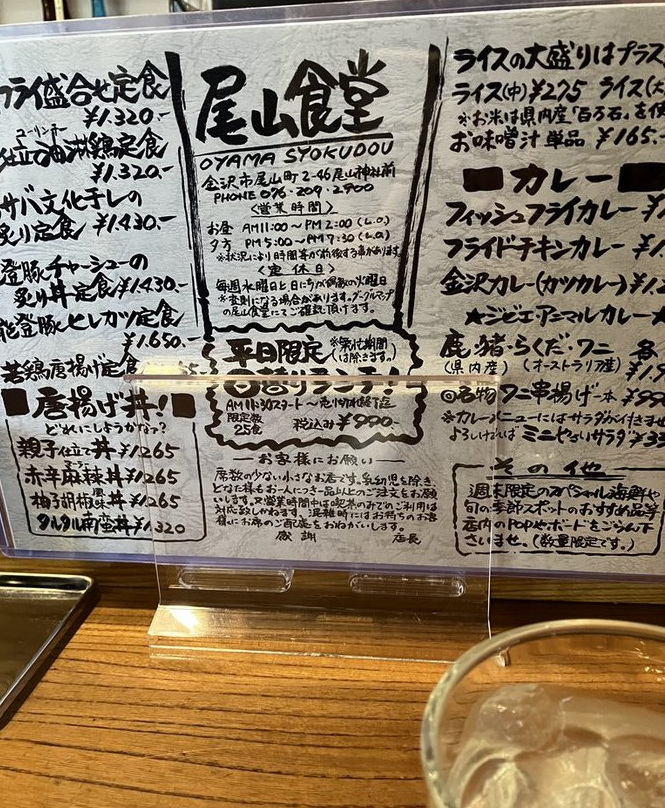 フライ盛合せ定食
¥1.320.-
ユーリンチー
仕立の油淋鶏定食
¥1.320.-
サバ文化干しの
炙り定食 ¥1.430.-
登豚チャーシューの
炙り丼定食 ¥1.430.-
能登豚ヒレカツ定食
¥1.650.-
若鶏唐揚げ定食
唐揚げ丼!
どれにしようかな?
親子仕立て丼 ¥1265
赤辛麻辣丼 ¥1265
柚子胡椒風味丼 ¥1265
タルタル南蛮丼 ¥1.320
尾山食堂
OYAMA SYOKUDOU
金沢市尾山町2-46尾山神社前
PHONE 076-209-2900
<営業時間>
お昼 AM11:00〜PM2:00(L.O.)
夕方 PM5:00〜PM7:30(L.O.)
※状況により時間等が前後する事があります
<定休日>
毎週水曜日と日にちが偶数の火曜日
※変則になる場合があります。グーグルマップ
の尾山食堂にてご確認頂けます。
平日限定 ※繁忙期間
は除きます。
日替りランチ!
AM11:30スタート〜売り切れ終了迄
限定数
25食 税込み¥990.-
お客様にお願い
席数の少ない小さなお店です。乳幼児を除き、
どなた様もお一人につき一品以上のご注文をお願
いします。又営業時間中は喫茶のみでのご利用は
対応致しかねます。混雑時にはお待ちのお客
様にお席のご配慮をおねがいします。
感謝 店長
ライスの大盛りはプラス
ライス(中)¥275 ライス(大
※お米は県内産「百万石」を使
お味噌汁 単品 ¥165.-
カレー
フィッシュフライカレー ¥1.
フライドチキンカレー ¥1.
金沢カレー(カツカレー) ¥1.2
★ジビエアニマルカレー★
鹿・猪・らくだ・ワニ 各
(県内産) (オーストラリア産) ¥1.9
◎名物 ワニ串揚げ一本 ¥99
※カレーメニューにはサラダが付きませ
よろしければ ミニやさいサラダ ¥33
その他
週末限定のスペシャル海鮮や
旬の季節スポットのおすすめ品等
店内のPOPやボードをごらん下
さいませ。(数量限定です。)